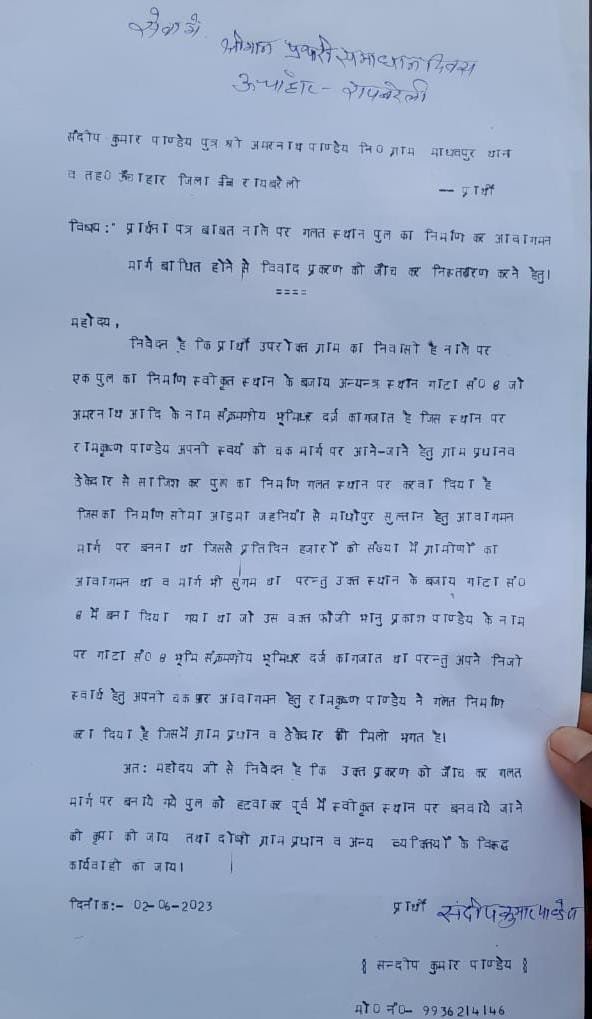 सेवा में,
श्रीमान प्रभारी समाधान दिवस
ऊंचाहार - रायबरेली
संदीप कुमार पाण्डेय पुत्र श्री अमरनाथ पाण्डेय नि0 ग्राम माधवपुर थाना
व तह0 ऊंचाहार जिला रायबरेली
-- प्रार्थी
विषय:" प्रार्थना पत्र बाबत नाले पर गलत स्थान पुल का निर्माण कर आवागमन
मार्ग बाधित होने से विवाद प्रकरण की जाँच कर निस्तारण करने हेतु।
====
महोदय,
निवेदन है कि प्रार्थी उपरोक्त ग्राम का निवासी है नाले पर
एक पुल का निर्माण स्वीकृत स्थान के बजाय अन्यन्त्र स्थान गाटा सं0 8 जो
अमरनाथ आदि के नाम संक्रमणीय भूमिधर दर्ज कागजात है जिस स्थान पर
रामकृष्ण पाण्डेय अपनी स्वयं की चक मार्ग पर आने-जाने हेतु ग्राम प्रधान व
ठेकेदार से साजिश कर पुल का निर्माण गलत स्थान पर करवा दिया है
जिसका निर्माण सीमा आइमा जहनियाँ से माधोपुर सुल्तान हेतु आवागमन
मार्ग पर बनना था जिससे प्रतिदिन हजारों की संख्या में ग्रामीणों का
आवागमन था व मार्ग भी सुगम था परन्तु उक्त स्थान के बजाय गाटा सं0
8 में बना दिया गया था जो उस वक्त फौजी भानु प्रकाश पाण्डेय के नाम
पर गाटा सं0 8 भूमि संक्रमणीय भूमिधर दर्ज कागजात था परन्तु अपने निजी
स्वार्थ हेतु अपनी चक पर आवागमन हेतु रामकृष्ण पाण्डेय ने गलत निर्माण
करा दिया है जिसमें ग्राम प्रधान व ठेकेदार की मिली भगत है।
अत: महोदय जी से निवेदन है कि उक्त प्रकरण की जाँच कर गलत
मार्ग पर बनाये गये पुल को हटवाकर पूर्व में स्वीकृत स्थान पर बनवाये जाने
की कृपा की जाय तथा दोषी ग्राम प्रधान व अन्य व्यक्तियों के विरूद्ध
कार्यवाही की जाय।
दिनाँक:- 02-06-2023
प्रार्थी संदीप कुमार पाण्डेय
( सन्दीप कुमार पाण्डेय )
मो0 नं0- 9936214146